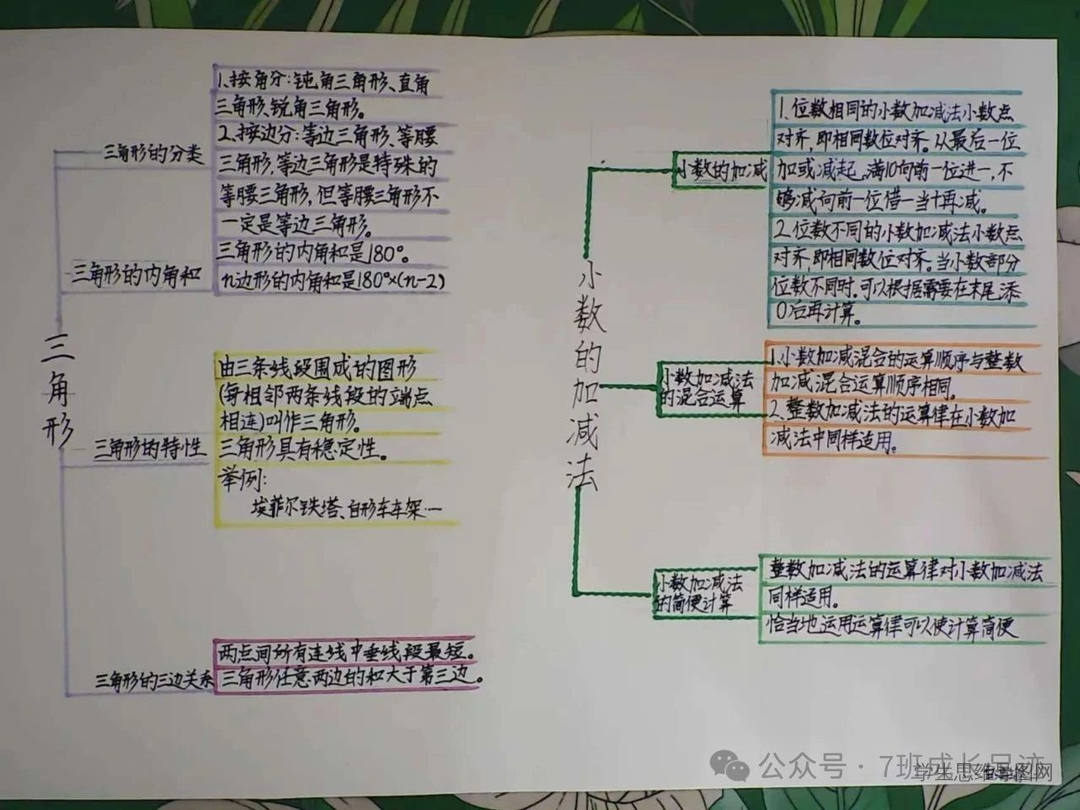 三角形
三角形的分类
1、按角分:钝角三角形、直角
三角形、锐角三角形。
2、按边分:等边三角形、等腰
三角形,等边三角形是特殊的
等腰三角形,但等腰三角形不
一定是等边三角形。
三角形的内角和
三角形的内角和是180°。
n边形的内角和是180°×(n-2)
三角形的特性
由三条线段围成的图形
(每相邻两条线段的端点
相连)叫作三角形。
三角形具有稳定性。
举例:
埃菲尔铁塔、自形车车架…
三角形的三边关系
两点间所有连线中垂线段最短。
三角形任意两边的和大于第三边。
小数的加减法
小数的加减
1、位数相同的小数加减法小数点
对齐,即相同数位对齐。从最后一位
加或减起,满10向前一位进一,不
够减向前一位借一当十再减。
2、位数不同的小数加减法小数点
对齐,即相同数位对齐。当小数部分
位数不同时,可以根据需要在末尾添
0后再计算。
小数加减法
的混合运算
1、小数加减混合的运算顺序与整数
加减混合运算顺序相同。
2、整数加减法的运算律在小数加
减法中同样适用。
小数加减法
的简便计算
整数加减法的运算律对小数加减法
同样适用。
恰当地运用运算律可以使计算简便
公众号·7班成长足迹
学生思维导图网